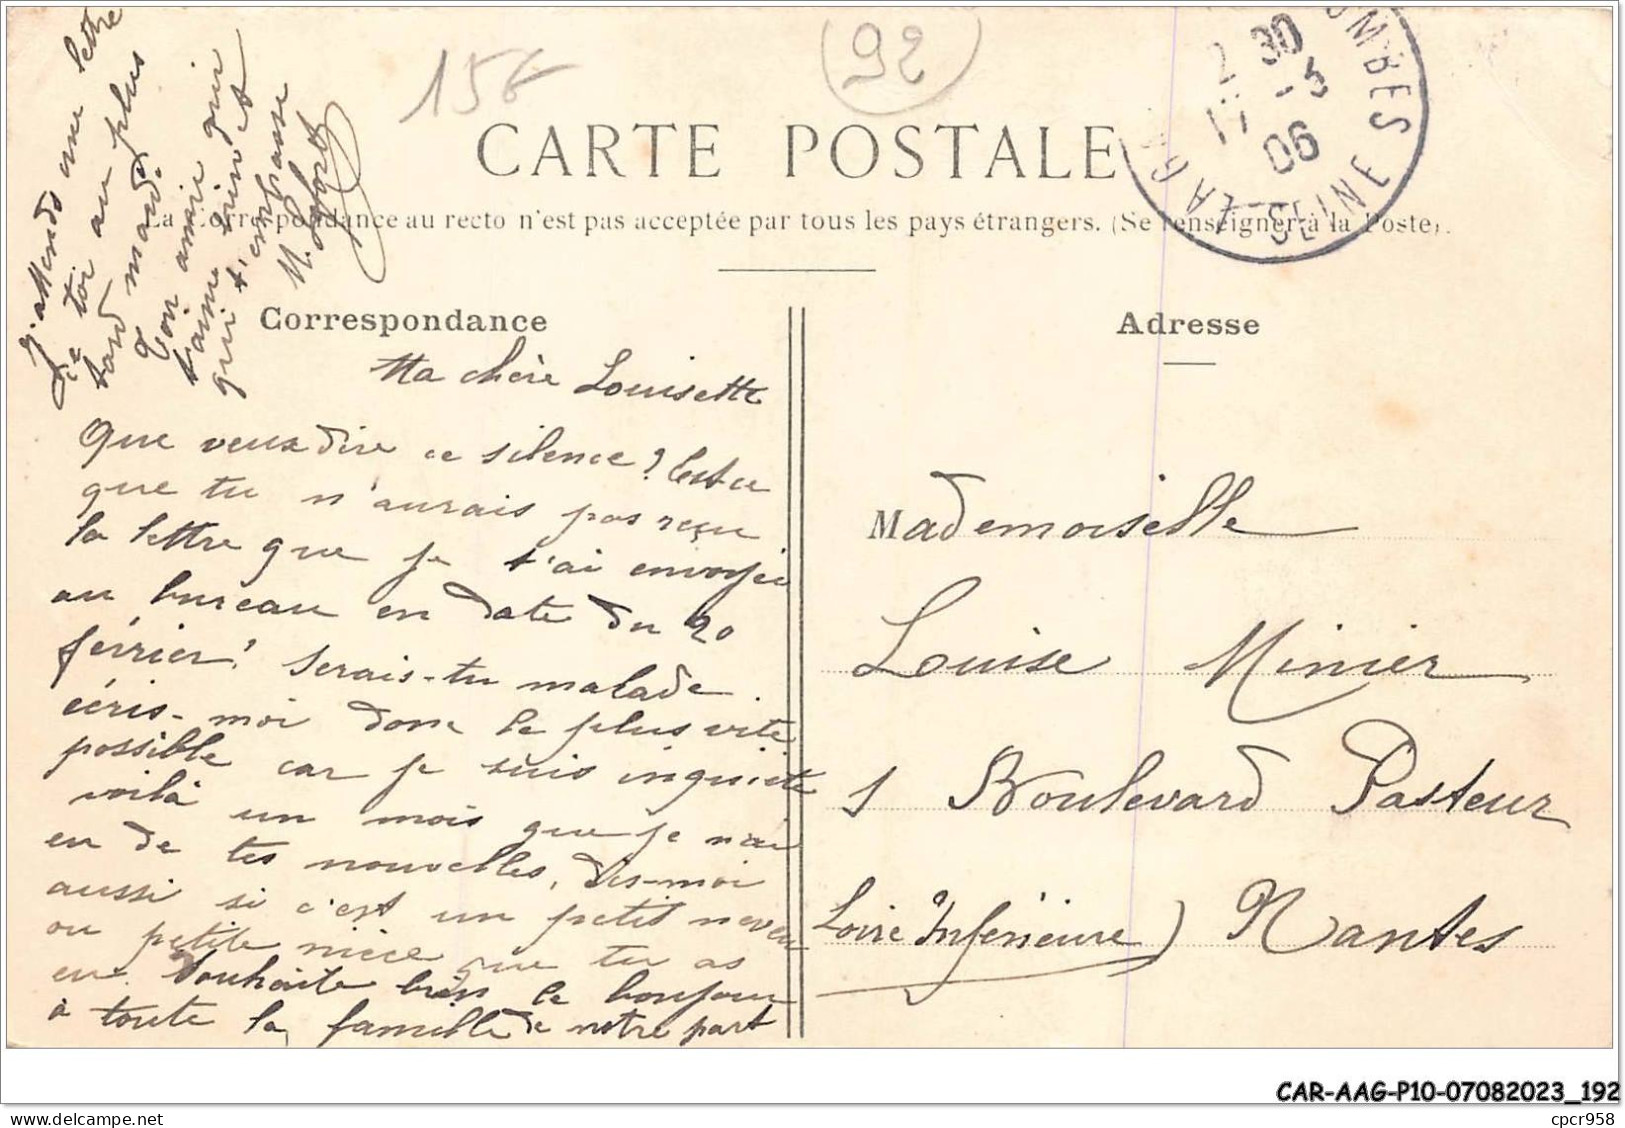 15€
92
CARTE POSTALE
La Correspondance au recto n'est pas acceptée par tous les pays étrangers. (Se renseigner à la Poste).
2 30
17 -3
06
LA G OMBES
SEINE
Correspondance
Ma chère Louisette
Que veux dire ce silence? Est ce
que tu n'aurais pas reçu
la lettre que je t'ai envoyée
au bureau en date du 20
février? Serais-tu malade.
écris-moi donc le plus vite
possible car je suis inquiète
voilà un mois que je n'ai
eu de tes nouvelles, dis-moi
aussi si c'est un petit neveu
ou petite nièce que tu as
eu. Souhaite bien le bonjour
à toute la famille de notre part
J'attends une lettre
de toi au plus
tard mardi
Ton amie qui
t'aime bien et
qui t'embrasse
M.
Adresse
Mademoiselle
Louise Minier
1 Boulevard Pasteur
Loire Inférieure) Nantes
CAR-AAG-P10-07082023_192
cpcr958